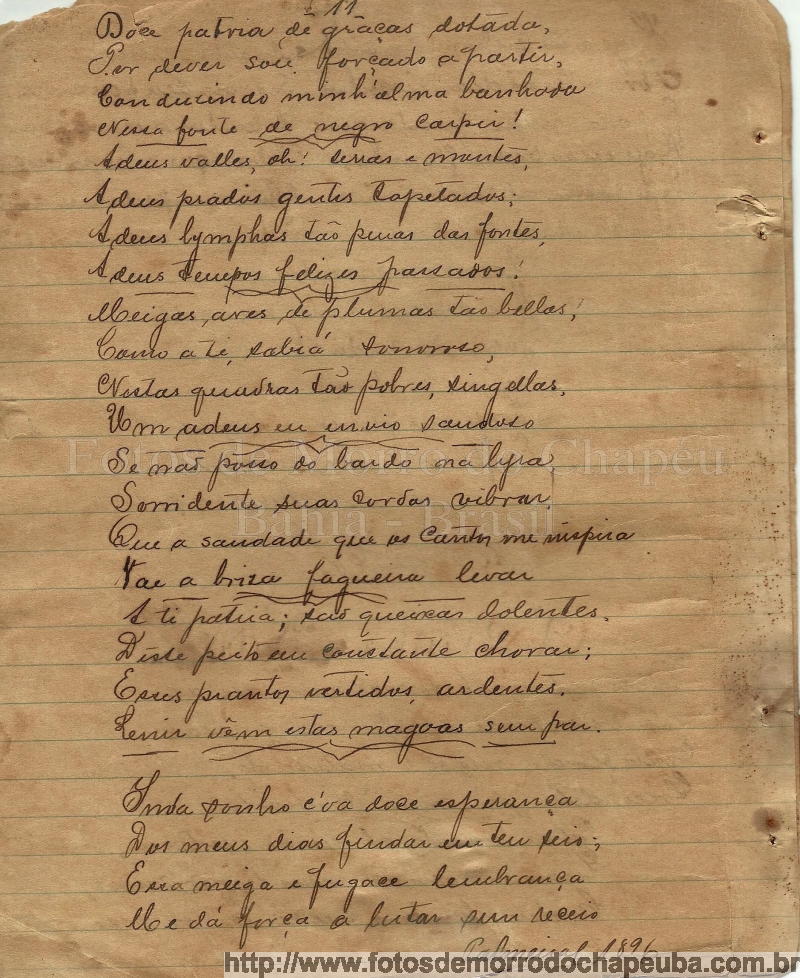 11
Dôce patria de graças dotada,
Por dever sou forçado a partir,
Conduzindo minh'alma banhada
Nessa fonte de negro carpir!
Adeus valles, oh! serras e montes,
Adeus prados gentis tapetados;
Adeus lymphas tão puras das fontes,
Adeus tempos felizes passados!
Meigas aves de plumas tão bellas,
Como a ti, sabiá sonoroso,
Nestas quadras tão pobres, singellas,
Um adeus eu envio saudoso
Se não posso do bardo na lyra,
Sorridente suas cordas vibrar,
Que a saudade que os cantos me inspira
Vae a briza fagueira levar
A ti patria; são queixas dolentes,
Deste peito em constante chorar;
Esses prantos vertidos, ardentes,
Lenir vêm estas magoas sem par.
Inda sonho c'oa doce esperança
Dos meus dias findar em teu seio;
Essa meiga e fugace lembrança
Me dá força a lutar sem receio
1896
Fotos de Morro do Chapeu
Bahia - Brasil
http://www.fotosdemorrodochapeuba.com.br